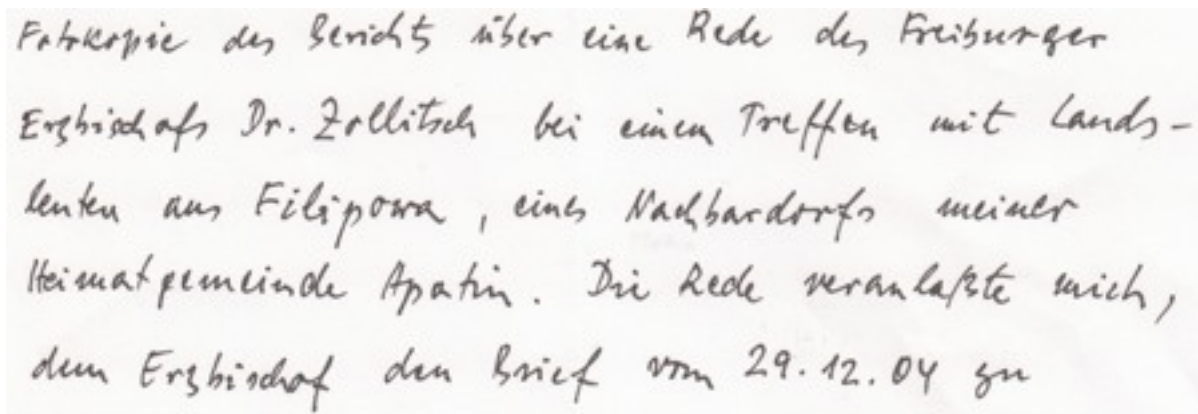 Fotokopie des Berichts über eine Rede des Freiburger
Erzbischofs Dr. Zollitsch bei einem Treffen mit Lands-
leuten aus Filipowa, eines Nachbardorfs meiner
Heimatgemeinde Apatin. Die Rede veranlaßte mich,
dem Erzbischof den Brief vom 29.12.04 zu